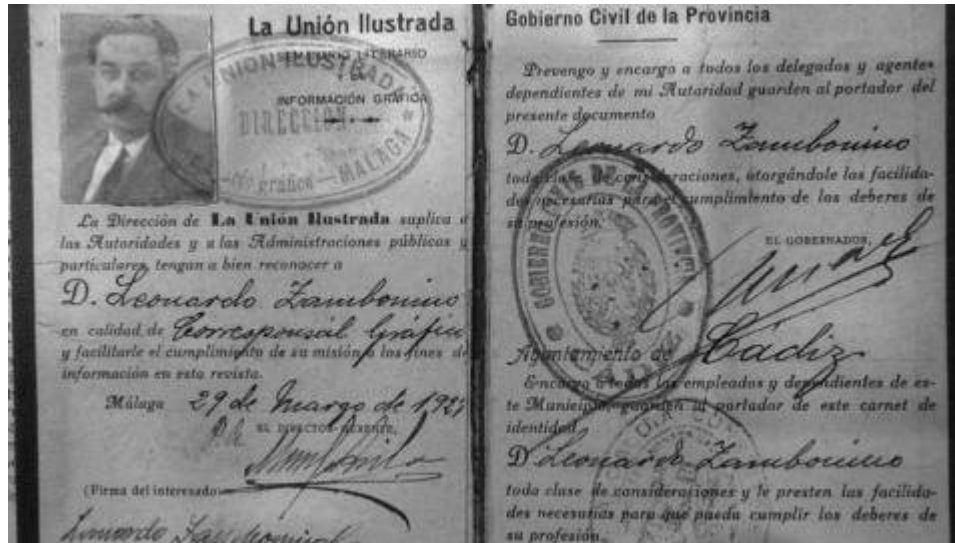 La Unión Ilustrada
SEMANARIO LITERARIO
INFORMACIÓN GRÁFICA
LA UNION ILUSTRADA
DIRECCION
MALAGA
La Dirección de La Unión Ilustrada suplica a
las Autoridades y a las Administraciones públicas y
particulares, tengan a bien reconocer a
D. Leonardo Zambonino
en calidad de Corresponsal Gráfico
y facilitarle el cumplimiento de su misión a los fines de
información en esta revista.
Málaga 29 de Marzo de
EL DIRECTOR-GERENTE,
(Firma del interesado)
Leonardo Zambonino
Gobierno Civil de la Provincia
Prevengo y encargo a todos los delegados y agentes
dependientes de mi Autoridad guarden al portador del
presente documento
D. Leonardo Zambonino
toda clase de consideraciones, otorgándole las facilida-
des necesarias para el cumplimiento de los deberes de
su profesión.
EL GOBERNADOR,
GOBIERNO DE LA PROVINCIA
CADIZ
Ayuntamiento de Cádiz
Encargo a todos los empleados y dependientes de es-
te Municipio, guarden al portador de este carnet de
identidad,
D. Leonardo Zambonino
toda clase de consideraciones y le presten las facilida-
des necesarias para que pueda cumplir los deberes de
su profesión.